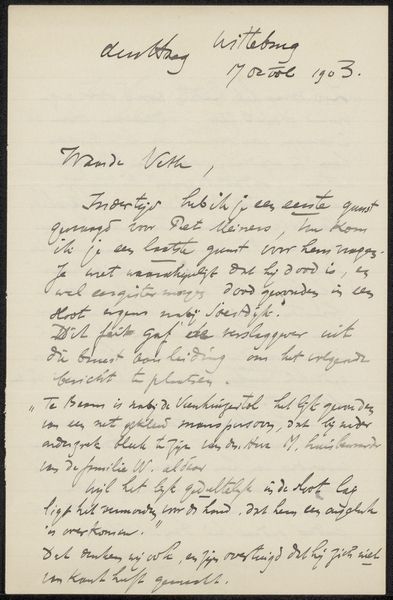 den Haag Wittebrug
17 Octob 1903.
Waarde Veth,
Indertijd heb ik je een eerste gunst
gevraagd voor Piet Meiners, nu kom
ik je een laatste gunst voor hem vragen.
Je weet waarschijnlijk dat hij dood is, en
wel eergister morgen dood gevonden in een
sloot ergens nabij Soestdijk.
Dit feit gaf de verslaggever uit
die buurt aanleiding om het volgende
bericht te plaatsen.
"Te Baarn is nabij de het lijk gevonden
van een net gekleed manspersoon, dat bij nader
onderzoek bleek te zijn van den Heer M, huisbewaarder
van de familie W. aldaar
Wijl het lijk gedeeltelijk in de sloot lag
ligt het vermoeden voor de hand, dat hem een ongeluk
is overkomen."
Dat denken wij ook, en zijn overtuigd dat hij zich niet
van kant heeft gemaakt.